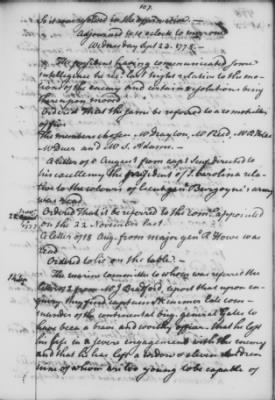 107.
So it was resolved in the affirmative. —
Adjourned to 10 o'Clock to morrow
Wednesday Sept. 23. 1778. —
The president having communicated some
intelligence he rec.d last night relative to the mo-
tions of the enemy and certain resolutions being
thereupon moved
Ordered That the same be referred to a committee
of five
The members chosen M.r Drayton, M.r Reed,
M.r Duer and M.r S. Adams. —
A letter of August from
his excellency the president of S. Carolina rela-
tive to the return of Lieut gen.l Burgoyne's army
was read
Ordered That it be referred to the com.ee appointed
on the 22 November last
A letter of 18 Aug. from major gen.l R Howe was
read
Ordered to lie on the table. —
The marine committee to whom was referred the
letter of from M.r J Bradford, report that upon en-
quiry they find captain Skimmer late com-
mander of the continental brig. general Gates to
have been a brave and worthy officer. that he lost
his life in a severe engagement with the enemy
and that he has left a widow &amp; eleven children
some of whom are too young to be capable of